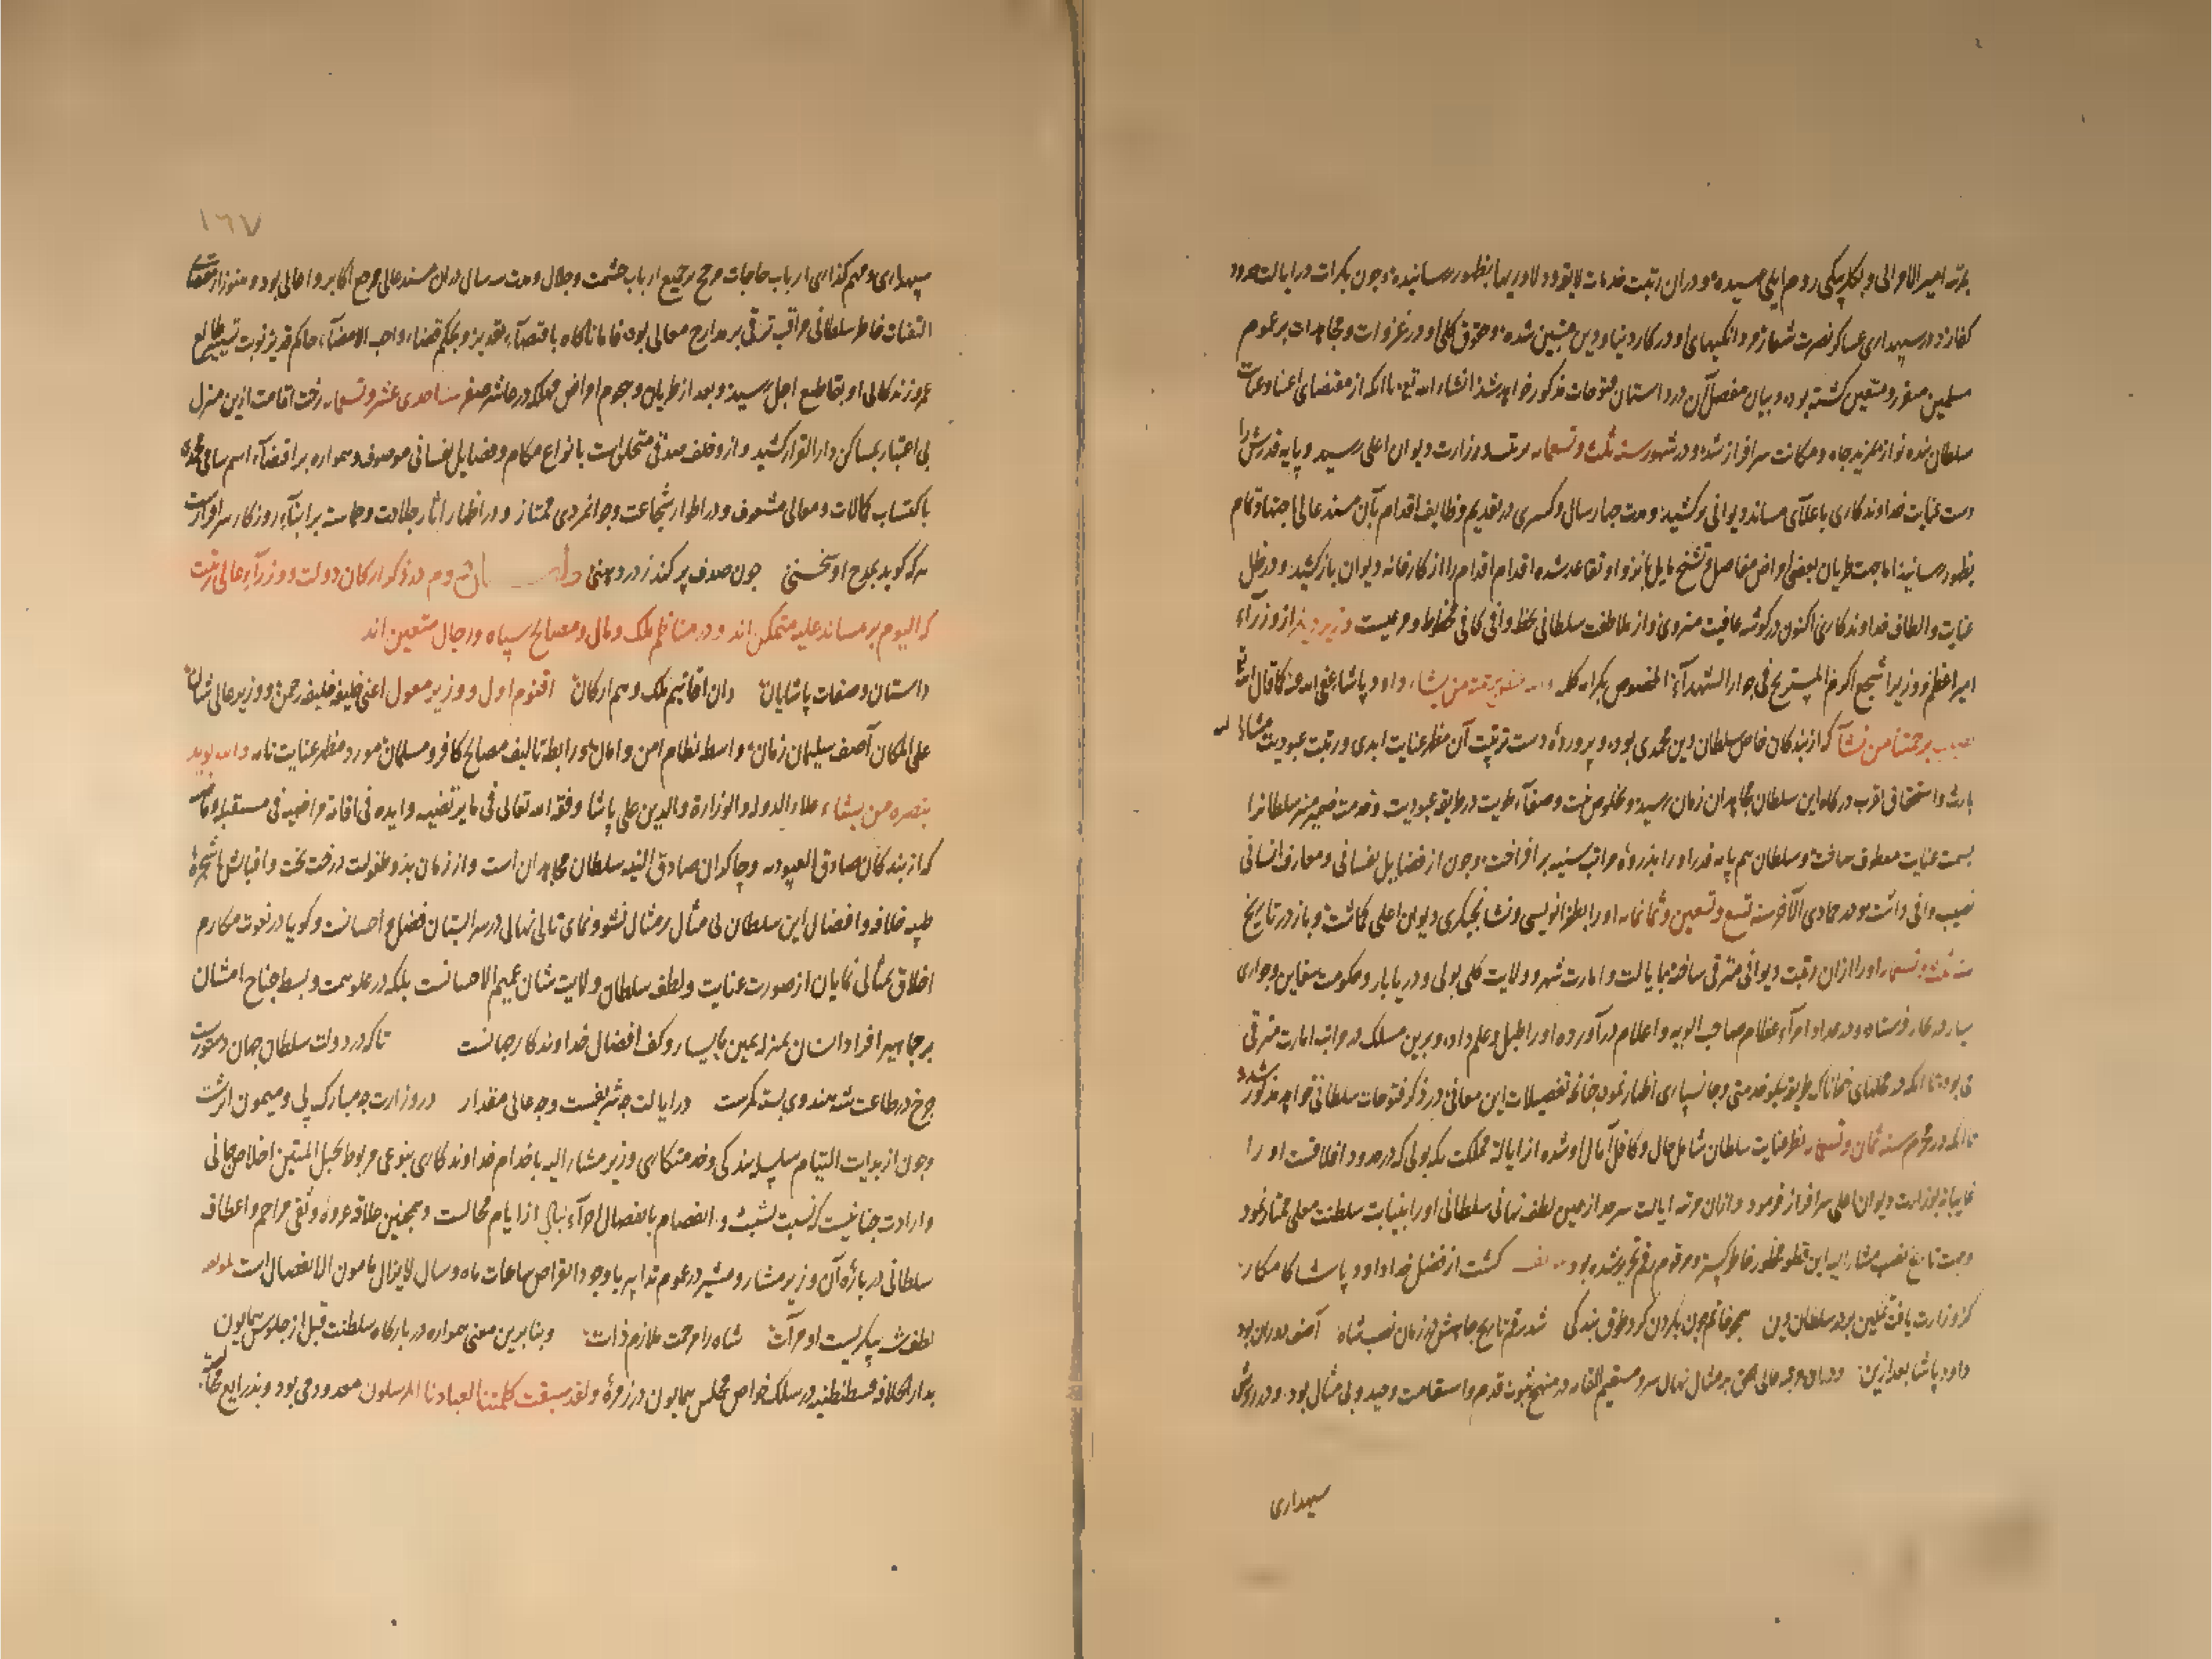 بمرتبه امیر الامرائی و بکلربیکی روم ایلی رسیده و دران رتبت خدمات لایقه و دلاوریها بظهور رسانیده و چون بکرات در ایالت حدود
کفار و در سپهداری عساکر نصرت شعار و مردانکیهای او در کار دنیا و دین مبین شده و حقوق کلی او در غزوات و مجاهدات بر عموم
مسلمین مقرر و متعین کشته بوده و بیان مفصل آن در داستان فتوحات مذکور خواهد شد انشاء الله تع تا انکه از مقتضای اعتنا و عنایت
سلطان بنده نواز بمزید جاه و مکانت سرافراز شد و در شهور سنه ثلث و تسعمایه بمرتبه وزارت دیوان اعلی رسید و پایه قدرش را
دست عنایت خداوندکاری باعلای مساند دیوانی برکشید و مدت چهار سال و کسری در تقدیم وظایف اقدام بآن مسند عالی اجتهاد تمام
بظهور رسانید اما جهت طریان بعضی امراض مفاصل و تشنج اقدام را از کارخانه دیوان باز کشید و در ظل
عنایت و الطاف خداوندکاری اکنون در کوشه عافیت منزوی و از ملاطفت سلطانی بحظ وافی کافی محظوظ و مرعیست وزیر دیکر از وزراء
امیر اعظم و وزیر اشجع اکرم المستریح فی جوار الشهداء المخصوص بکرامه داود پاشا عفی الله عنه کما قال الله تعا
نصیب برحمتنا من نشآ که از بندکان خاص سلطان دین محمدی بوده و پرورده دست تربیت آن مظهر عنایت ابدی و رتبت عبودیت مشار الیه
بارث و استحقاق اقرب درکاه این سلطان مجاهدان زمان رسیده و بخلوص نیت و صفاء طویت در طریقه عبودیت و خدمت ضمیر منیر سلطانرا
بسمت عنایت معطوف ساخت و سلطان هم پایه قدر او را بذروه مراتب سنیه برافراخت و چون از فضایل نفسانی و معارف انسانی
نصیب وافی داشت در جمادی الآخر سنه تسع و تسعین و ثمانمایه او را بطغرانویسی و نشانجیکری دیوان اعلی کماشت و باز در تاریخ
سنه ثلث و تسعمایه او را ازان رتبت دیوانی مترقی ساخته بایالت و امارت شهر و ولایت کلی بولی و دریابار و حکومت سفاین و جواری
بسیار در بحار فرستاد و در عداد امراء عظام صاحب الویه و اعلام درآورده او را طبل و علم داد و برین مسلک در مراتب امارت مترقی
می بود تا انکه در محلهای خطرناک طریق نیکو خدمتی و جانسپاری اظهار نمود چنانچه تفصیلات این معانی در ذکر فتوحات سلطانی خواهد مذکور شد
تا انکه در محرم سنه ثمان و تسعمایه نظر عنایت سلطان شامل حال و کافل آمال او شده از ایالت مملکت بکه بولی که در حدود افلاقست او را
غایبانه بوزارت دیوان اعلی سرافراز فرمود و ازان مرتبه ایالت سرحد از عین لطف نهانی سلطانی او را بنیابت سلطنت معلی ممتاز نمود
و جهت تاریخ نصب مشار الیه این قطعه خاطر و مرقوم رقم تحریر شده بود لمؤلفه کشت از فضل خدا داود پاشا کامکار
کز وزارت یافت تمکین بر در سلطان دین همچو خاتم چون بکردن کرد طوق بندکی شد رقم تاریخ جاهش در زمان نصب شاه آصف دوران بود
داود پاشا بعد ازین و دران مرتبه عالی بر مثال نهال سرو مستقیم القامه در منهج ثبوت قدم و استقامت وحید و بی مثال بود و در روش
سپهداری
١٦٧
سپهداری و مهم کذاری ارباب حاجات مرجح بر جمیع ارباب حشمت و جلال و مدت سه سال دران مسند عالی مرجع اکابر و اهالی بود و هنوز از مقتضای
التفات خاطر سلطانی مراقب ترقی بر مدارج معالی بود فاما ناکاه باقتضآء تقدیر و بحکم قضاء واجب الامضآء حاکم قدیر نوبت تسییر طالع
عمر و زندکانی او بقاطع اجل رسید و بعد از طریان و هجوم امراض مهلکه در عاشر صفر سنه احدی عشر و تسعمایه رخت اقامت ازین منزل
بی اعتبار بمساکن دار القرار کشید و از و خلف صدقی متخلف است بانواع مکارم و فضایل نفسانی موصوف و همواره بر اقتضآء اسم سامی محمدی
باکتساب کمالات و معالی مشعوف و در اطوار شجاعت و جوانمردی ممتاز و در اظهار آثار جلادت و حماسه بر ابنآء روزکار سرافرازست
هرکه کوید بمدح او سخنی چون صدف پر کند ز در دهنی داستان دوم در ذکر ارکان دولت و وزرآء عالی رتبت
که الیوم بر مساند علیه متمکن اند و در مناظم ملک و مال و مصالح سپاه و رجال متعین اند
داستان وصفات پاشایان دان اقانیم ملک و هم ارکان اقنوم اول و وزیر معول اعنی خلیفه خلیفه رحمن و وزیر عالی شان
علی المکان آصف سلیمان زمان واسطه نظام امن و امان و رابطه تالیف مصالح کافر و مسلمان مورد مظهر عنایت تامه و الله یؤید
بنصره من یشاء علاء الدوله و الوزارة و الدین علی پاشا وفقه الله تعالی فی ما یرتضیه و ایده فی اقامة مراضیه فی مستقبله و ماضیه
که از بندکان صادق العبودیه و چاکران صادق النیه سلطان مجاهدان است و از زمان بدو طفولت درخت بخت و اقبالش شجره
طیبه خلافه و افضال این سلطان بی مثال بر مثال نشو و نمای تالی نهالی در سرابستان فضل و احسانست و کویا در نعوت مکارم
اخلاق تمثالی نمایان از صورت عنایت و لطف سلطان ولایت شان عمیم الاحسانست بلکه در علو همت و بسط جناح امتنان
بر جماهیر افراد انسان بمنزله یمین با یسار و کف افضال خداوندکار جهانست تا که در دولت سلطان جهان دستورست
چرخ در طاعت شه هندوی بسته کمرست در ایالت چه شریفست و چه عالی مقدار در وزارت چه مبارک پی و میمون اثرست
و چون از بدایت التیام سلسله بندکی و خدمتکاری وزیر مشار الیه باخدام خداوندکاری بنوعی مربوط بحبل المتین اخلاص جانی
و ارادت جنانیست که نسبت تشبث و انفصام بانفصال اجزآء لیالی از ایام محالست و همچنین علاقه عروه وثقی مراحم و اعطاف
سلطانی درباره آن وزیر مشار و مشیر در عموم تدابیر با وجود انقراض ساعات ماه و سال لایزال مامون الانفصال است لمؤلفه
لطف شه پیکریست او مرآت شاه را مرحمت ملازم ذات و بنابرین معنی همواره در بارکاه سلطنت قبل از جلوس همایون
بدار الخلافه قسطنطنیه در سلک خواص مجلس همایون در زمره و لقد سبقت کلمتنا لعبادنا المرسلون معدود می بود و بذرایع